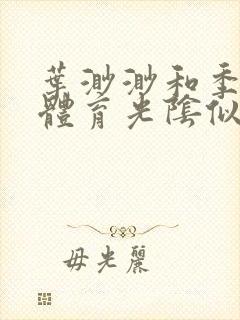 葉渺渺和季
體育光陰似
毋光麗